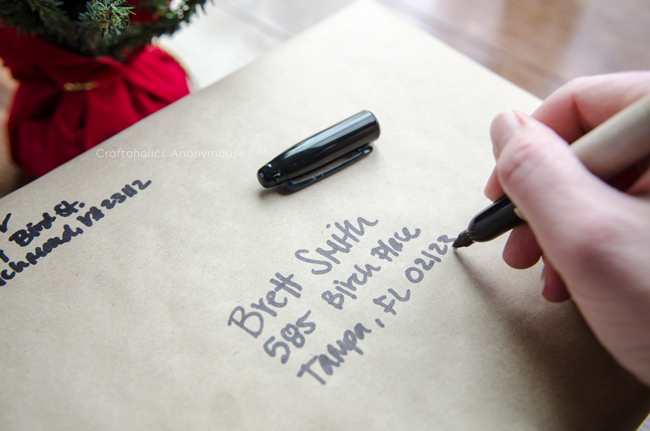 Craftaholics Anonymous
Bird St.
Richmond, VA 23112
Brett Smith
585 Birch Place
Tampa, FL 02123